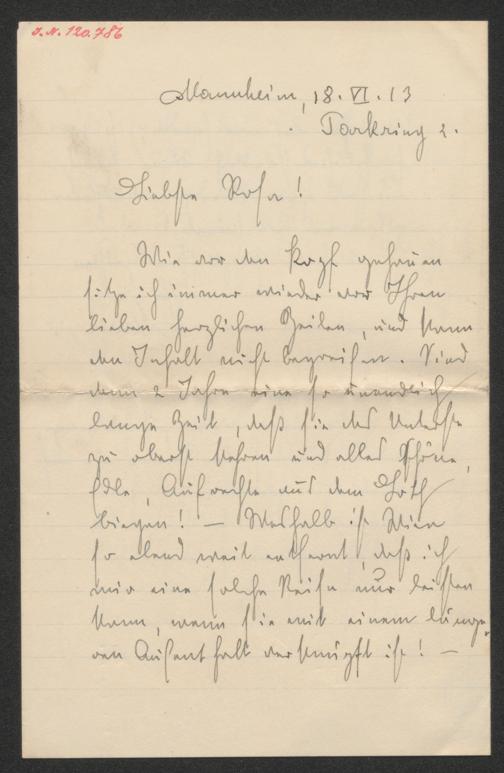 J.N. 120.786
Mannheim, 18. VI. 13
Parkring 2.
Liebste Rosa!
Wie vor den Kopf gehauen
sitze ich immer wieder vor Ihren
lieben herzlichen Zeilen, und kann
den Inhalt nicht begreifen. Sind
denn 2 Jahre eine so unendlich
lange Zeit, daß sie das Unterste
zu oberst kehren und alles Schöne,
Edle, Aufrechte aus dem Loth
biegen! — Weshalb ist Wien
so elend weit entfernt, daß ich
mir eine solche Reise nur leisten
kann, wenn sie mit einem länge-
ren Aufenthalt verknüpft ist! —